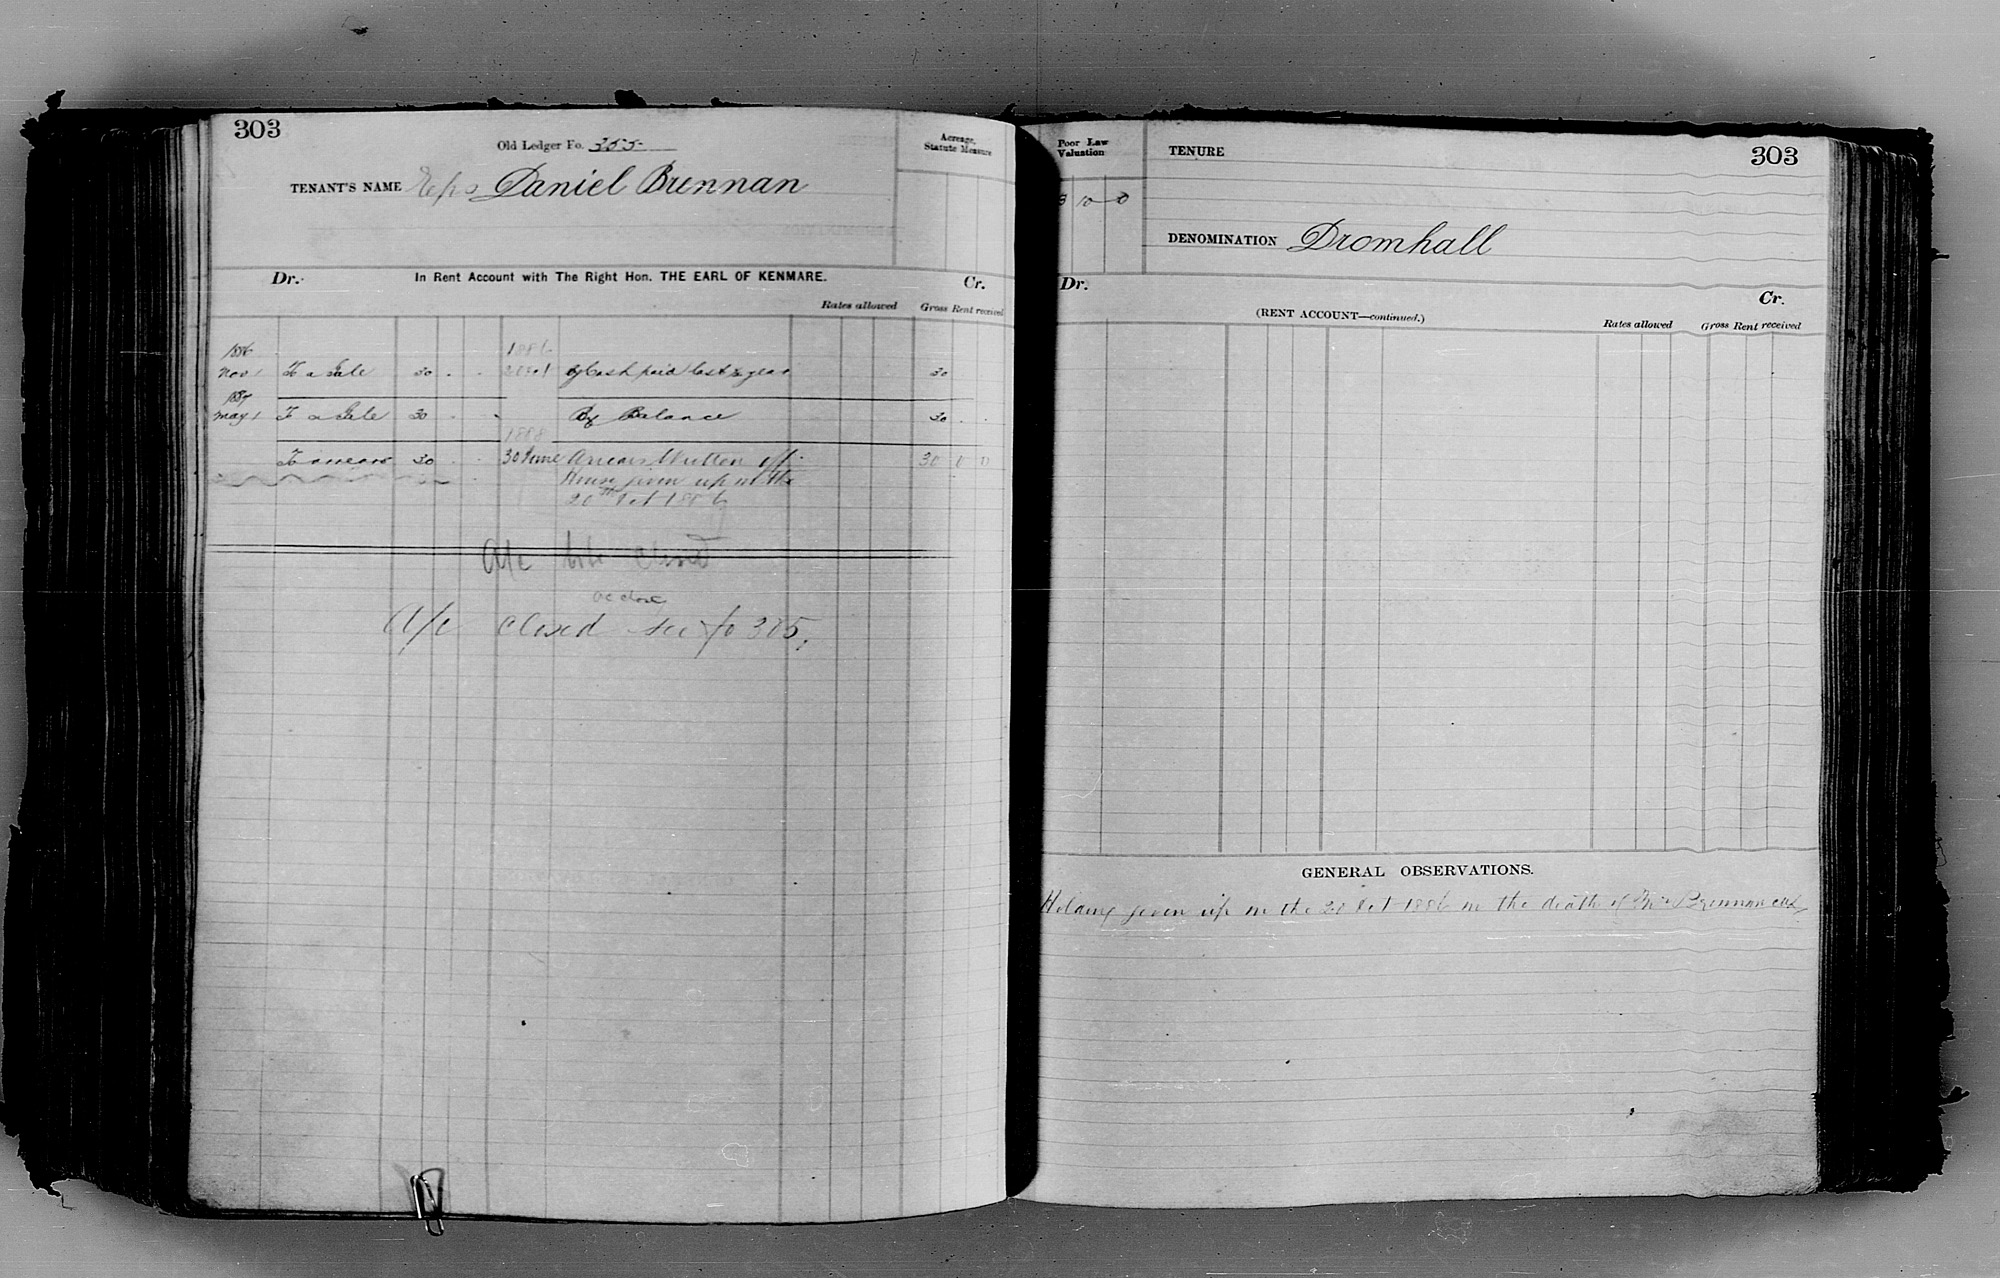 303
Old Ledger Fo. 355
Acreage, Statute Measure
TENANT'S NAME Exps Daniel Brennan
Dr. In Rent Account with The Right Hon. THE EARL OF KENMARE. Cr.
Rates allowed Gross Rent received
1886 1886
Nov 1 To a Gale 30 . . 20 Oct By Cash paid last ½ year 30
1887
May 1 To a Gale 30 . . By Balance 30 . .
1888
To arrears 30 . . 30 June Arrears Written off 30 0 0
House given up on the
20th Oct 1886
A/c to be closed
A/c closed see fo 305
303
Poor Law Valuation
TENURE
3 10 0
DENOMINATION Dromhall
Dr. Cr.
(RENT ACCOUNT—continued.)
Rates allowed Gross Rent received
GENERAL OBSERVATIONS.
Holding given up on the 20 Oct 1886 on the death of Mrs Brennan